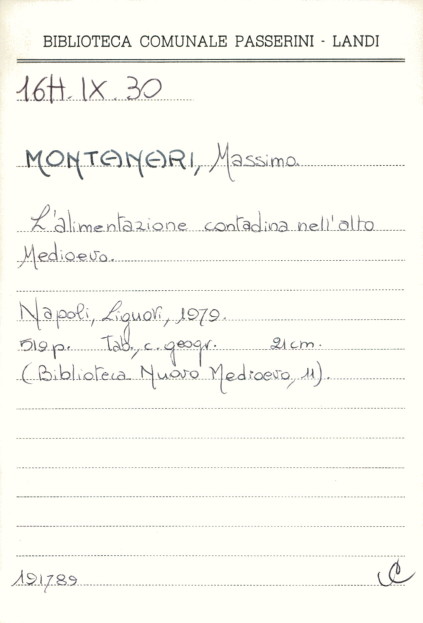 BIBLIOTECA COMUNALE PASSERINI - LANDI
16H. IX. 30
MONTANARI, Massimo
L'alimentazione contadina nell'alto
Medioevo.
Napoli, Liguori, 1979.
519 p. Tab., c. geogr. 21 cm.
(Biblioteca Nuovo Medioevo, 11).
191789
C